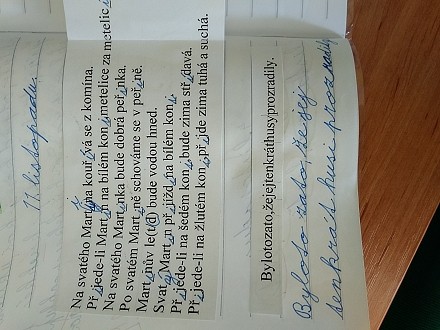 11. listopadu.
Na svatého Martina kouřívá se z komína.
Přijede-li Martin na bílém koni, metelice za metelicí
Na svatého Martinka bude dobrá peřinka.
Po svatém Martině schováme se v peřině.
Martinův le(t/d) bude vodou hned.
Svatý Martin přijíždí na bílém koni
Přijede-li na šedém koni, bude zima střídavá.
Přijede-li na žlutém koni, přijde zima tuhá a suchá.
Bylotozato,žejejtenkráthusyprozradily.
Byloto zato, že jej
tenkrát husi prozradily